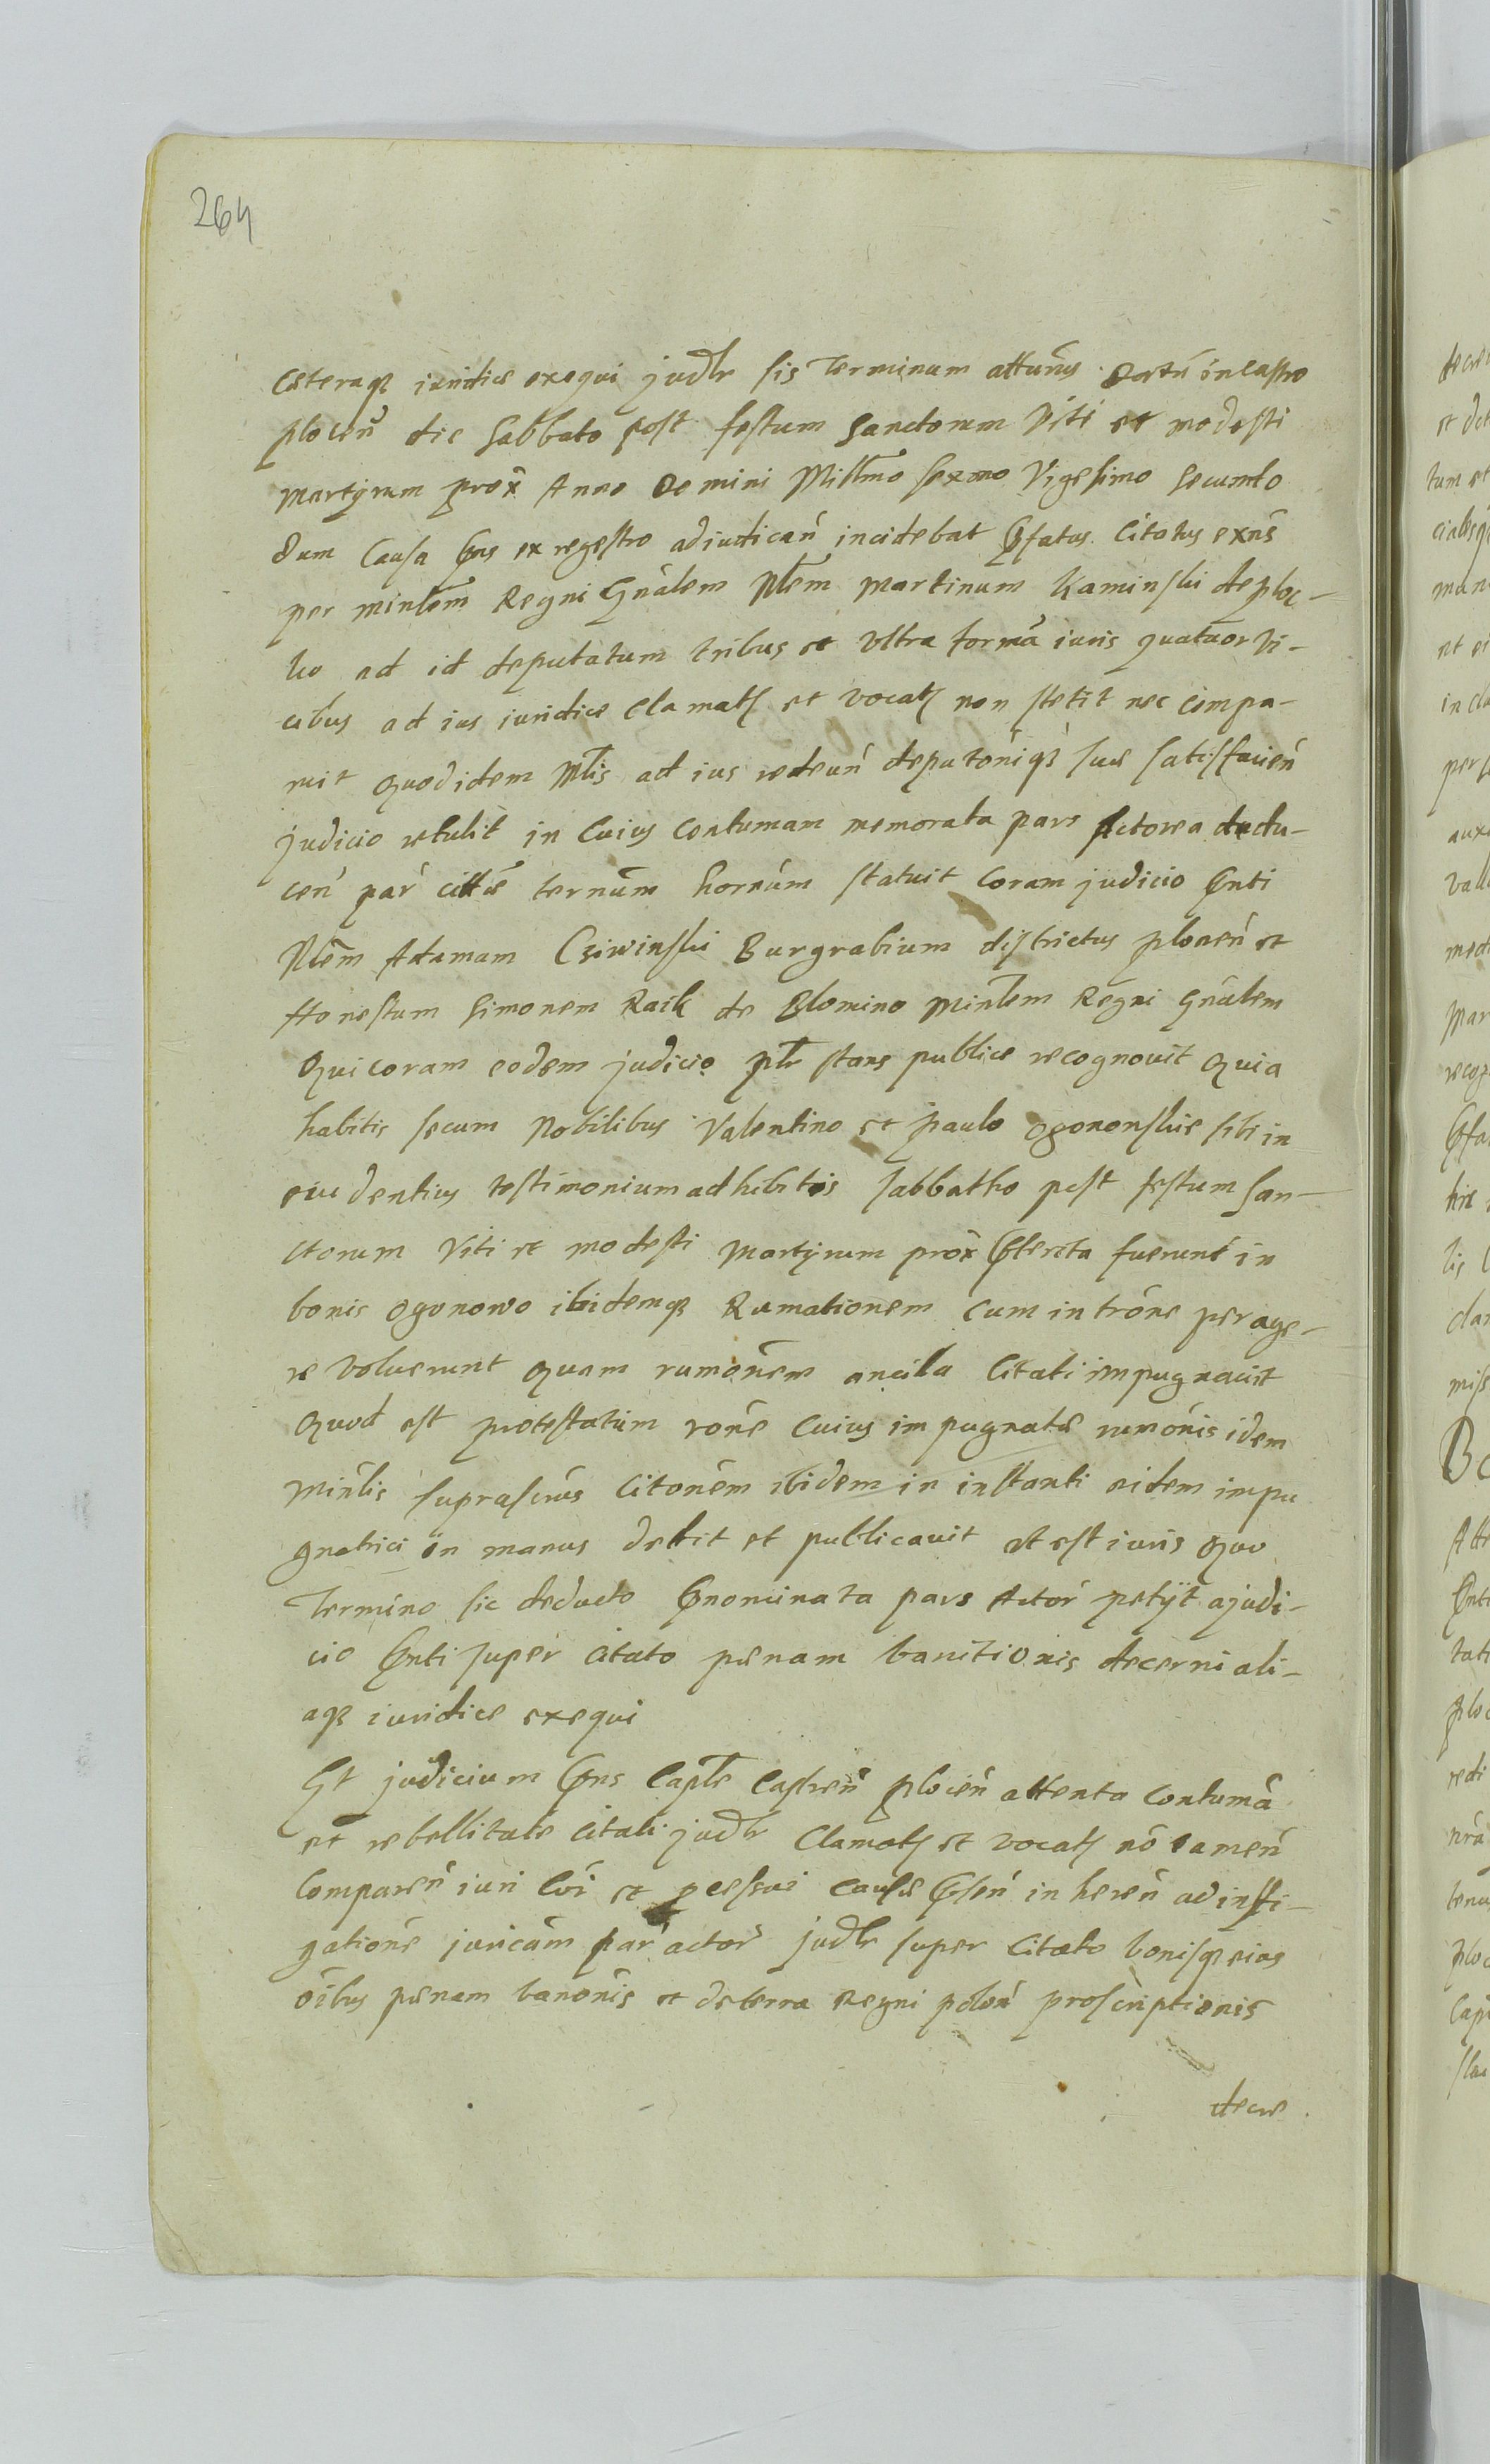 264
Cæteraq3 iuridice exequi judlr sis Terminum attunus in Castro
plocen die Sabbato post festum Sanctorum Viti et modesti
martÿrum prox Anno Domini Millmo Sexmo Vigesimo Secundo
dum Causa Pns ex regestro adiudican incidebat Pfatus Citatus exns
per minlem Regni Gnalem Nlem Martinum Kaminski de ploc-
ko ad id deputatum tribus et Vltra formã iuris quatuor vi-
cibus ad ius iuridice Clamatus et vocatus non stetit nec compa-
ruit quod idem Mlis ad ius redeun deputoniq3 suæ satisfacien
judicio retulit in Cuius Contumam memorata pars Actorea dedu-
cen par cittæ ternum hornum statuit Coram judicio Pnti
Nlem Adamam Cziwinski Burgrabium districtus plonen et
Honestum Simonem Raik de Blomino Minlem Regni Gnalem
Qui coram eodem judicio plr stans publice recognouit Quia
habitis secum Nobilibus Valentino et paulo Ogononskie sibi in
euidentius testimonium adhibitis sabbatho post festum San-
ctorum Viti et modesti martÿrum prox Pterita fuerunt in
bonis Ogonowo ibidemq3 Rumationem cum introne perage-
re voluerunt quam rumonem ancilla Citati impugnauit
Quod est protestatum rone Cuius impugnatæ rumonis idem
Minlis suprascrus Citonem ibidem in instanti eidem impu
gnatrici in manus dedit et publicauit vt est iuris Quo
Termino sic deducto Pnominata pars Actor petÿt a judi-
cio Pnti super Citato pænam banitionis decerni ali-
aq3 iuridice exequi
Et judicium Pns Caple Castren plocen attenta Contumã
et rebellitate Citati judlr Clamatus et vocatus nõ tamen
Comparen iuri Coi et pcessui causæ Psen in heren ad insti-
gatione juricam par actor judlr super Citato bonisq3 eius
oibus pænam banonis et de terra Regni polon proscriptionis
decre